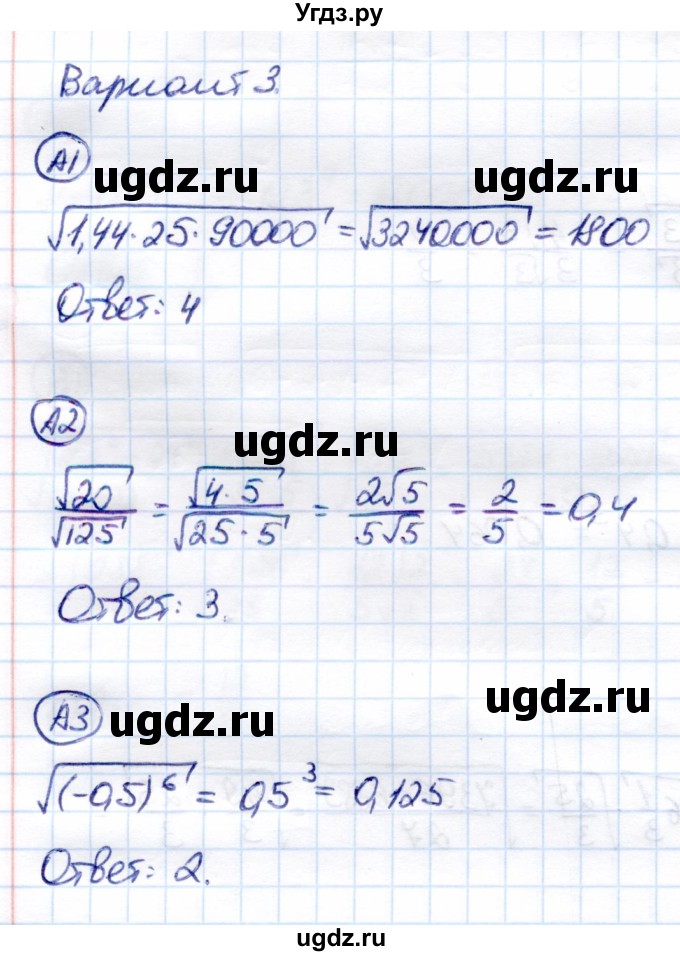 Угдз.ру
Вариант 3.
А1
ugdz.ru ugdz.ru
√(1,44·25·90000) = √(3240000) = 1800
Ответ: 4
А2
ugdz.ru
√20/√125 = √(4·5)/√(25·5) = 2√5/5√5 = 2/5 = 0,4
Ответ: 3.
А3
ugdz.ru ugdz.ru
√((-0,5)^6) = 0,5^3 = 0,125
Ответ: 2.
ugdz.ru